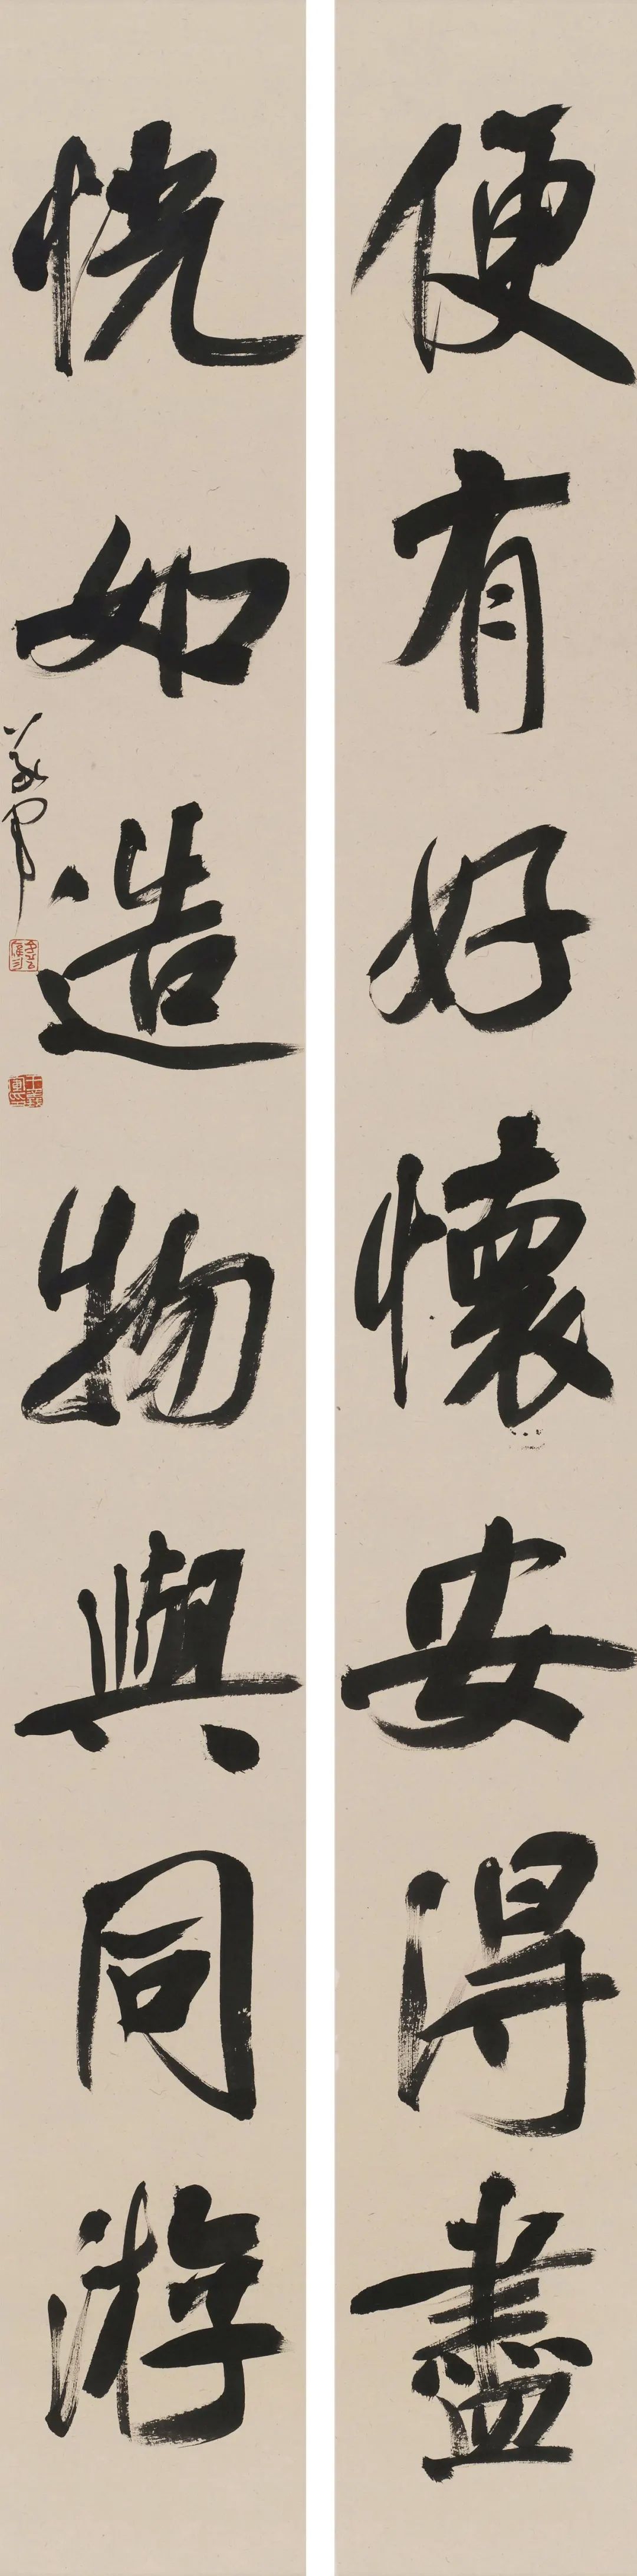 便有好懷安得盡
恍如造物與同游
義軍